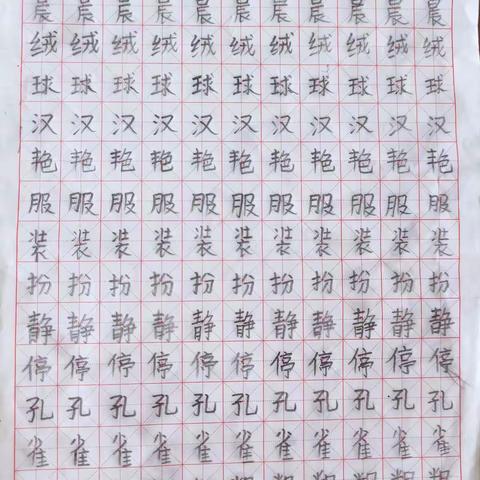 晨晨晨晨晨晨晨晨晨晨晨
绒绒绒绒绒绒绒绒绒绒绒
球球球球球球球球球球球
汉汉汉汉汉汉汉汉汉汉汉
艳艳艳艳艳艳艳艳艳艳艳
服服服服服服服服服服服
装装装装装装装装装装装
扮扮扮扮扮扮扮扮扮扮扮
静静静静静静静静静静静
停停停停停停停停停停停
孔孔孔孔孔孔孔孔孔孔孔
雀雀雀雀雀雀雀雀雀雀雀